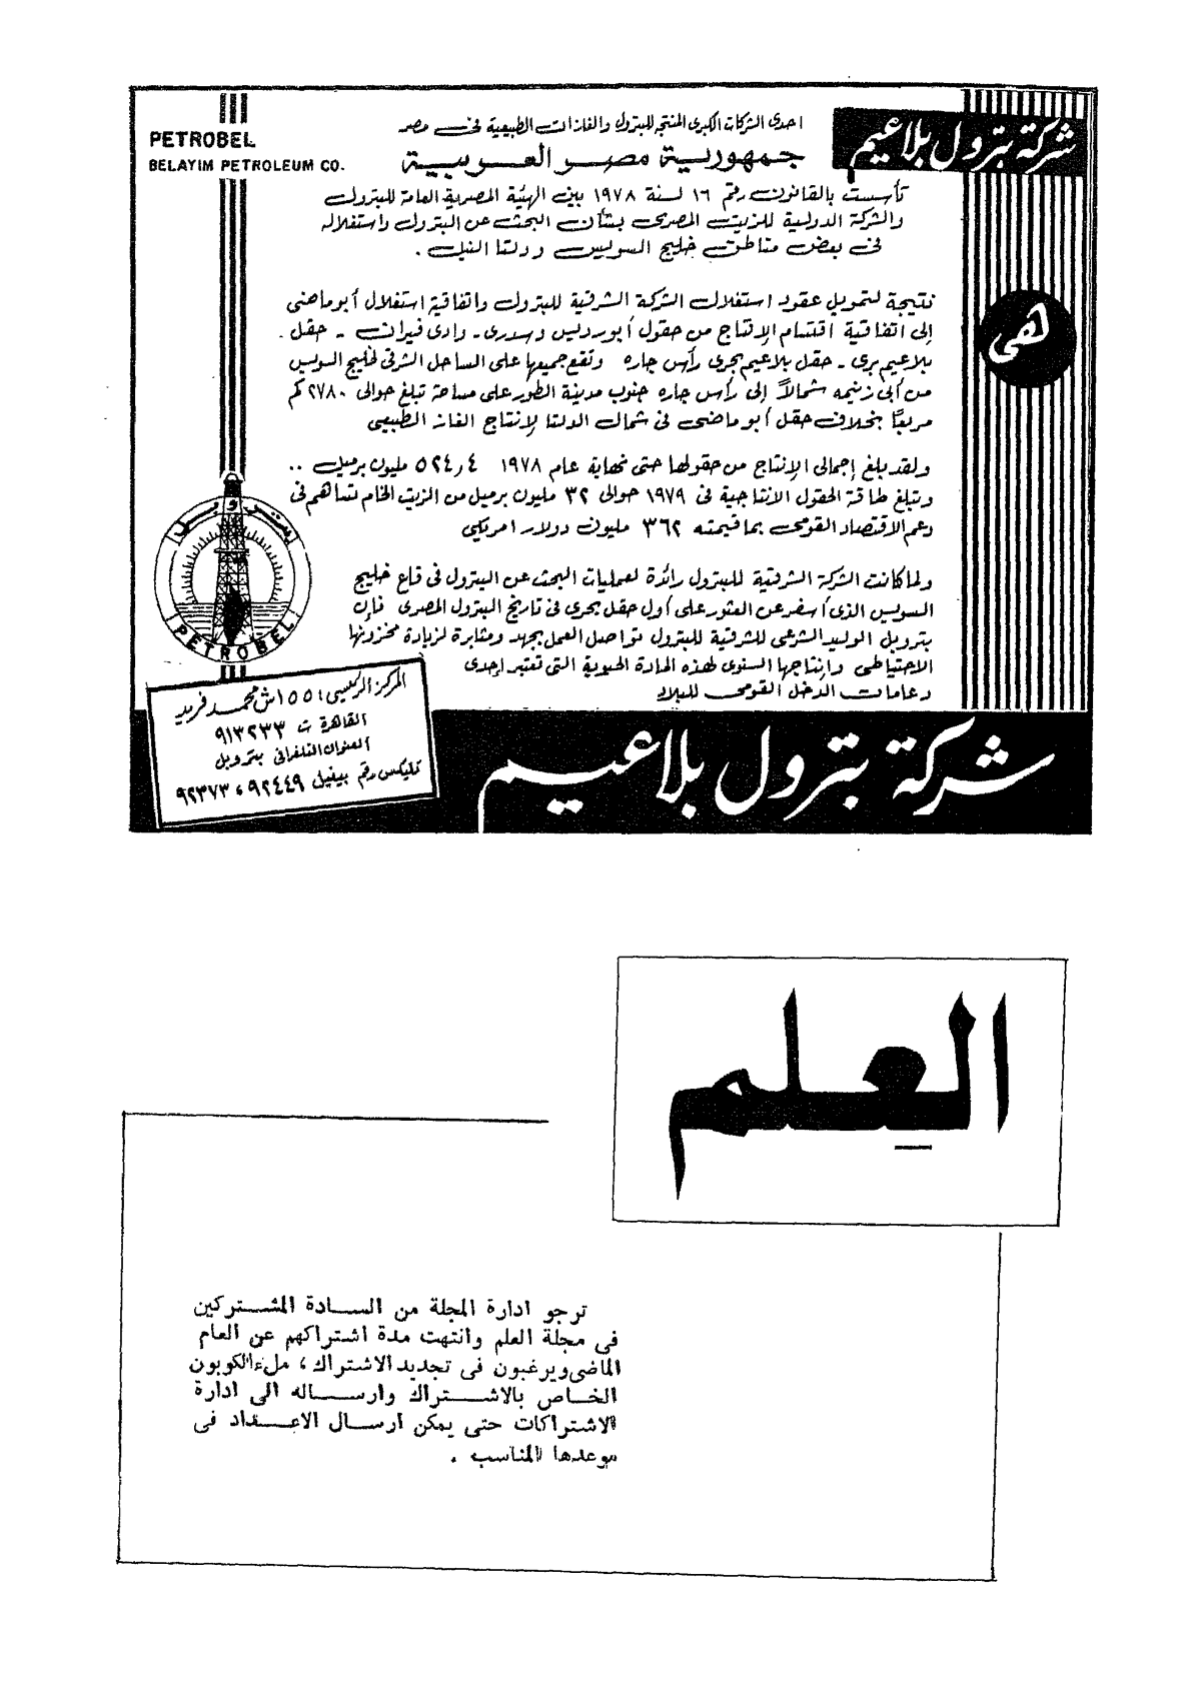 شركة بترول بلاعيم
PETROBEL
BELAYIM PETROLEUM CO.
هى
احدى الشركات الكبرى المنتجة للبترول والغازات الطبيعية فى مصر
جمهورية مصر العربية
تأسست بالقانون رقم ١٦ لسنة ١٩٧٨ بين الهيئة المصرية العامة للبترول
والشركة الدولية للزيت المصرى بشأن البحث عن البترول واستغلاله
فى بعض مناطق خليج السويس ودلتا النيل .
نتيجة لتمويل عقود استغلال الشركة الشرقية للبترول واتفاقية استغلال أبوماضى
إلى اتفاقية اقتسام الإنتاج من حقول أبورديس وسدرى - وادى فيران - حقل
بلاعيم برى - حقل بلاعيم بحرى رأس جاره وتقع جميعها على الساحل الشرقى لخليج السويس
من أبى زنيمه شمالاً إلى رأس جاره جنوب مدينة الطور على مساحة تبلغ حوالى ٢٧٨٠ كم
مربعًا بخلاف حقل أبوماضى فى شمال الدلتا لإنتاج الغاز الطبيعى
ولقد بلغ إجمالى الإنتاج من حقولها حتى نهاية عام ١٩٧٨ ٥٢٤٫٤ مليون برميل ..
وتبلغ طاقة الحقول الانتاجية فى ١٩٧٩ حوالى ٣٢ مليون برميل من الزيت الخام تساهم فى
دعم الاقتصاد القومى بما قيمته ٣٦٢ مليون دولار امريكى
ولما كانت الشركة الشرقية للبترول رائدة لعمليات البحث عن البترول فى قاع خليج
السويس الذى أسفر عن العثور على أول حقل بحرى فى تاريخ البترول المصرى فإن
بتروبل الوليد الشرعى للشرقية للبترول تواصل العمل بجهد ومثابرة لزيادة مخزونها
الاحتياطى وإنتاجها السنوى لهذه المادة الحيوية التى تعتبر إحدى
دعامات الدخل القومى للبلاد
بتروبل
PETROBEL
المركز الرئيسى : ١٥٥ ش محمد فريد
القاهرة ت ٩١٣٢٣٣
العنوان التلغرافى بتروبل
تليكس رقم بيفيل ٩٢٤٤٩ ، ٩٢٣٧٣
شركة بترول بلاعيم
العِلم
ترجو ادارة المجلة من السادة المشتركين
فى مجلة العلم وانتهت مدة اشتراكهم عن العام
الماضى ويرغبون فى تجديد الاشتراك ، ملء الكوبون
الخاص بالاشتراك وارساله الى ادارة
الاشتراكات حتى يمكن ارسال الاعداد فى
موعدها المناسب .